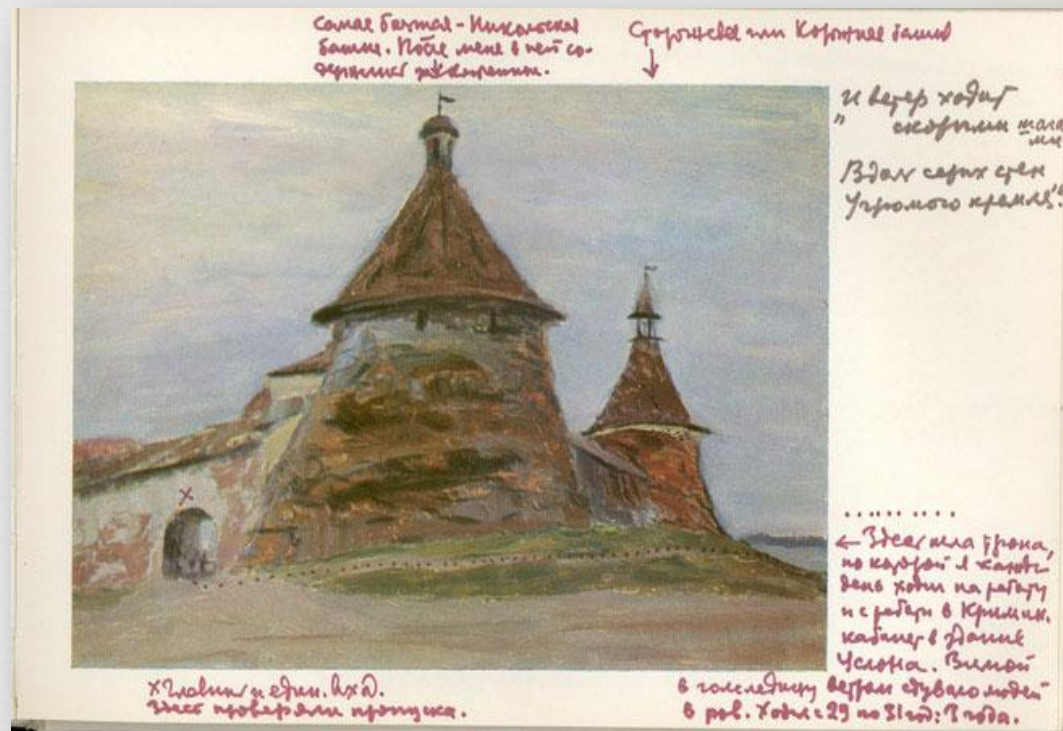 Самая большая - Никольская
башня. После меня в ней со-
держались
Сторожевая или Корожная башня
↓
"И ветер ходит
скорыми шага
ми
Вдоль серых стен
Угрюмого кремля".
.........
← Здесь шла тропа,
по которой я каждый
день ходил на работу
и с работы в Кримин.
кабинет в здание
Услона. Зимой
в гололедицу ветром сдувало людей
в ров. Ходил с 29 по 31 год: 3 года.
х
х Главный и един. вход.
Здесь проверяли пропуска.